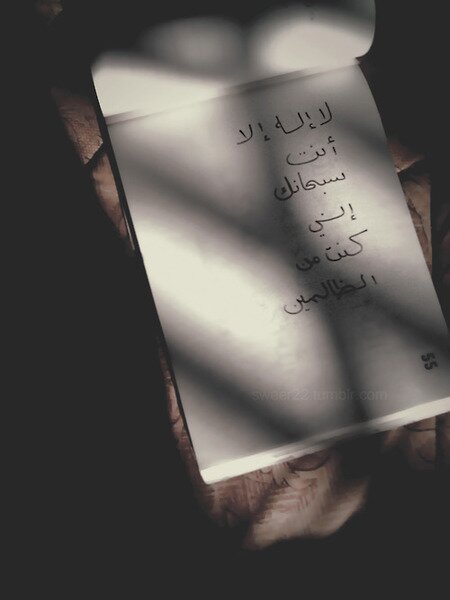 لا إله إلا
أنت
سبحانك
إني
كنت من
الظالمين
SS
sweer22.tumblr.com